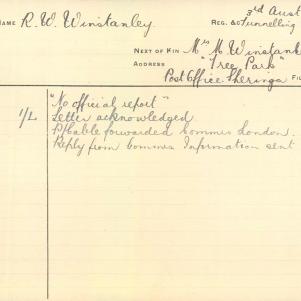 NAME R. W. Winstanley
REG. &c 3rd Aust Tunnelling
NEXT OF KIN Mrs M Winstanl
ADDRESS "Tree Park"
Post Office Sheringa
"No official report"
1/L Letter acknowledged
forwarded Commrs London.
Reply from Commrs Information sent